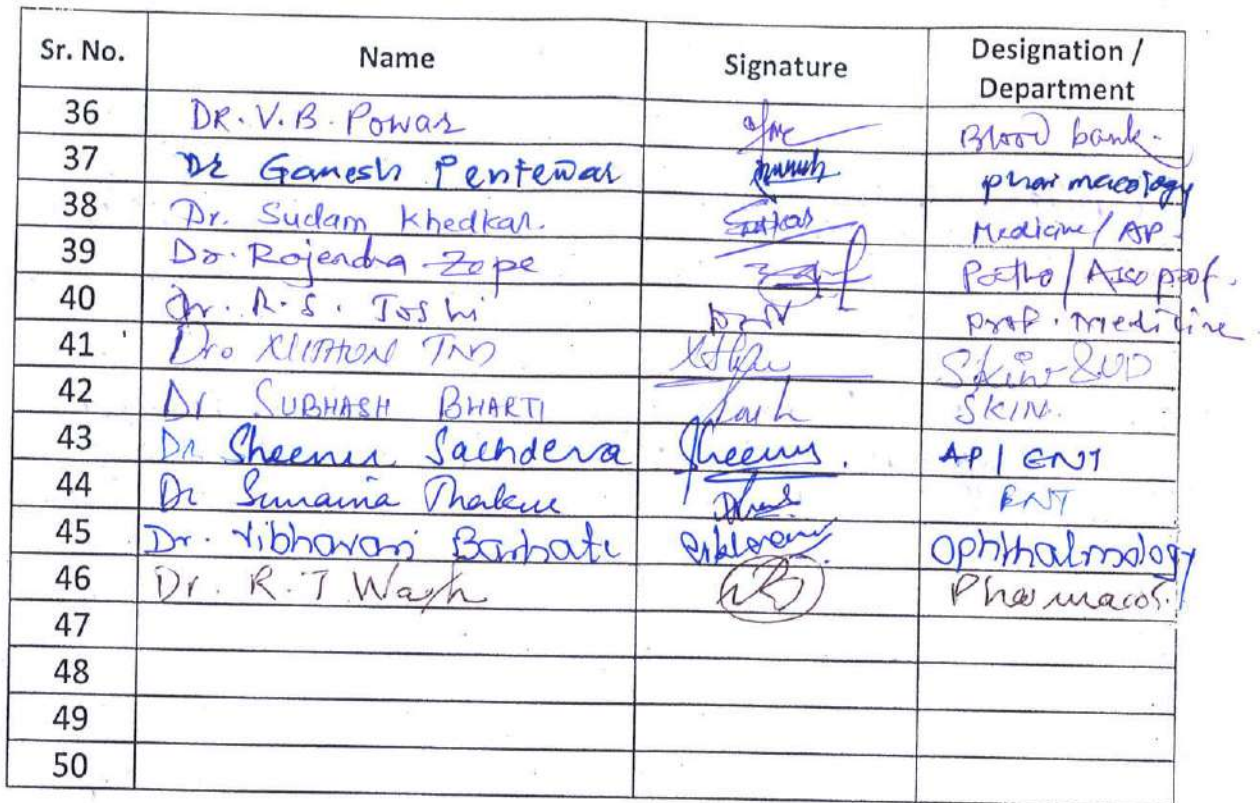 Sr. No. Name Signature Designation / Department
36 DR. V. B. Powar Blood bank.
37 Dr Ganesh Pentewar pharmacology
38 Dr. Sudam Khedkar. Medicine / AP
39 Dr. Rajendra Zope Patho / Asso prof.
40 Dr. R. S. Joshi prof. medicine
41 Skin
42 Dr SUBHASH BHARTI SKIN.
43 Dr Sheenu Sachdeva Sheenu AP / ENT
44 Dr Sunaina Thakur ENT
45 Dr. Vibhavari Barhate Ophthalmology
46 Dr. R. T Wagh
47
48
49
50